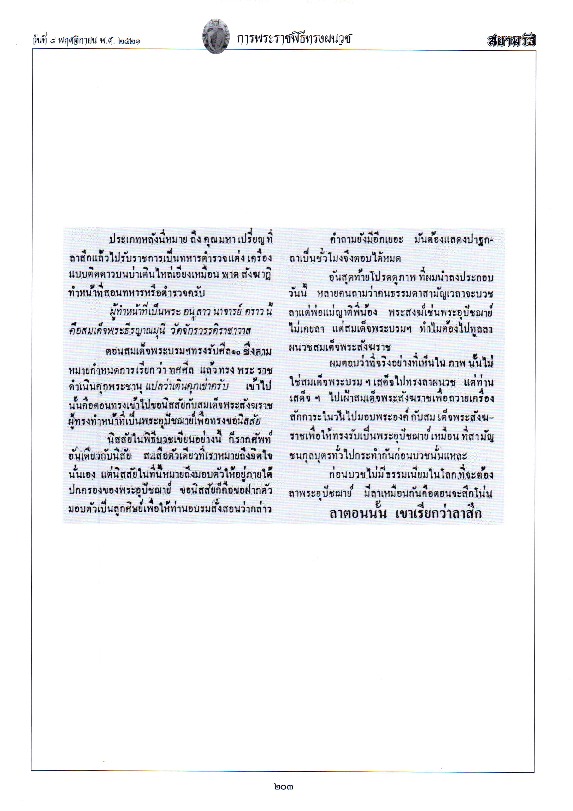 วันที่ ๘ พฤศจิกายน พ.ศ. ๒๕๒๑
การพระราชพิธีทรงผนวช
สยามรัฐ
ประเภทหลังนี่หมาย ถึง คุณมหา เปรียญ ที่
ลาสึกแล้วไปรับราชการเป็นทหารตำรวจแต่ง เครื่อง
แบบติดดาวบนบ่าเดินใหญ่เอี่ยงเหมือน พาด สังฆาฏิ
ทำหน้าที่สอนทหารหรือตำรวจครับ
ผู้ทำหน้าที่เป็นพระ อนุสาว นาจารย์ คราว นี้
คือสมเด็จพระธีรญาณมุนี วัดจักรวรรดิราชาวาส
ตอนสมเด็จพระบรมฯทรงรับศีล๑๐ ซึ่งตาม
หมายกำหนดการ เรียก ว่า ทศศีล แล้วทรง พระ ราช
ดำเนินคุกพระชานุ แปลว่าเดินคุกเข่าครับ เข้าไป
นั้นคือตอนทรงเข้าไปขอนิสสัยกับสมเด็จพระสังฆราช
ผู้ทรงทำหน้าที่เป็นพระอุปัชฌาย์เพื่อทรงขอนิสสัย
นิสสัยในพิธีบวชเขียนอย่างนี้ ก็รากศัพท์
อันเดียวกับนิสัย สนเสือตัวเดียวที่เราหมายถึงจิตใจ
นั่นเอง แต่นิสสัยในที่นี้หมายถึงมอบตัวให้อยู่ภายใต้
ปกครองของพระอุปัชฌาย์ ขอนิสสัยก็คือขอฝากตัว
มอบตัวเป็นลูกศิษย์เพื่อให้ท่านอบรมสั่งสอนว่ากล่าว
คำถามยังมีอีกเยอะ มันต้องแสดงปาฐก-
ถาเป็นชั่วโมงจึงตอบได้หมด
อันสุดท้ายโปรดดูภาพ ที่ผมนำลงประกอบ
วันนี้ หลายคนถามว่าคนธรรมดาสามัญเวลาจะบวช
ลาแต่พ่อแม่ญาติพี่น้อง พระสงฆ์เช่นพระอุปัชฌาย์
ไม่เคยลา แต่สมเด็จพระบรมฯ ทำไมต้องไปทูลลา
ผนวชสมเด็จพระสังฆราช
ผมตอบว่าที่จริงอย่างที่เห็นใน ภาพ นั้นไม่
ใช่สมเด็จพระบรม ฯ เสด็จไปทรงลาผนวช แต่ท่าน
เสด็จ ฯ ไปเฝ้าสมเด็จพระสังฆราชเพื่อถวายเครื่อง
สักการะในวันไปมอบพระองค์ กับสม เด็จพระสังฆ-
ราชเพื่อให้ทรงรับเป็นพระอุปัชฌาย์ เหมือน ที่สามัญ
ชนกุลบุตรทั่วไปกระทำกันก่อนบวชนั่นแหละ
ก่อนบวชไม่มีธรรมเนียมในโลก ที่จะต้อง
ลาพระอุปัชฌาย์ มีลาเหมือนกันคือตอนจะสึกโน่น
ลาตอนนั้น เขาเรียกว่าลาสึก
๒๐๓